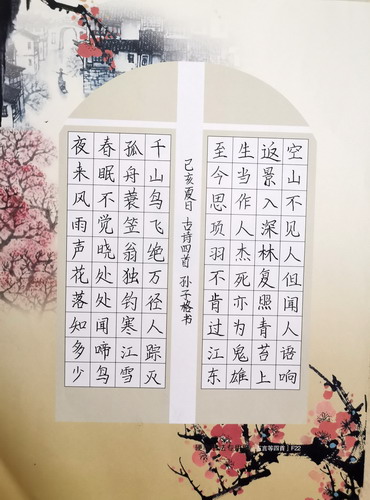 空山不见人但闻人语响
返景入深林复照青苔上
生当作人杰死亦为鬼雄
至今思项羽不肯过江东
己亥夏日 古诗四首 孙子格书
千山鸟飞绝万径人踪灭
孤舟蓑笠翁独钓寒江雪
春眠不觉晓处处闻啼鸟
夜来风雨声花落知多少
言等四首 | F22